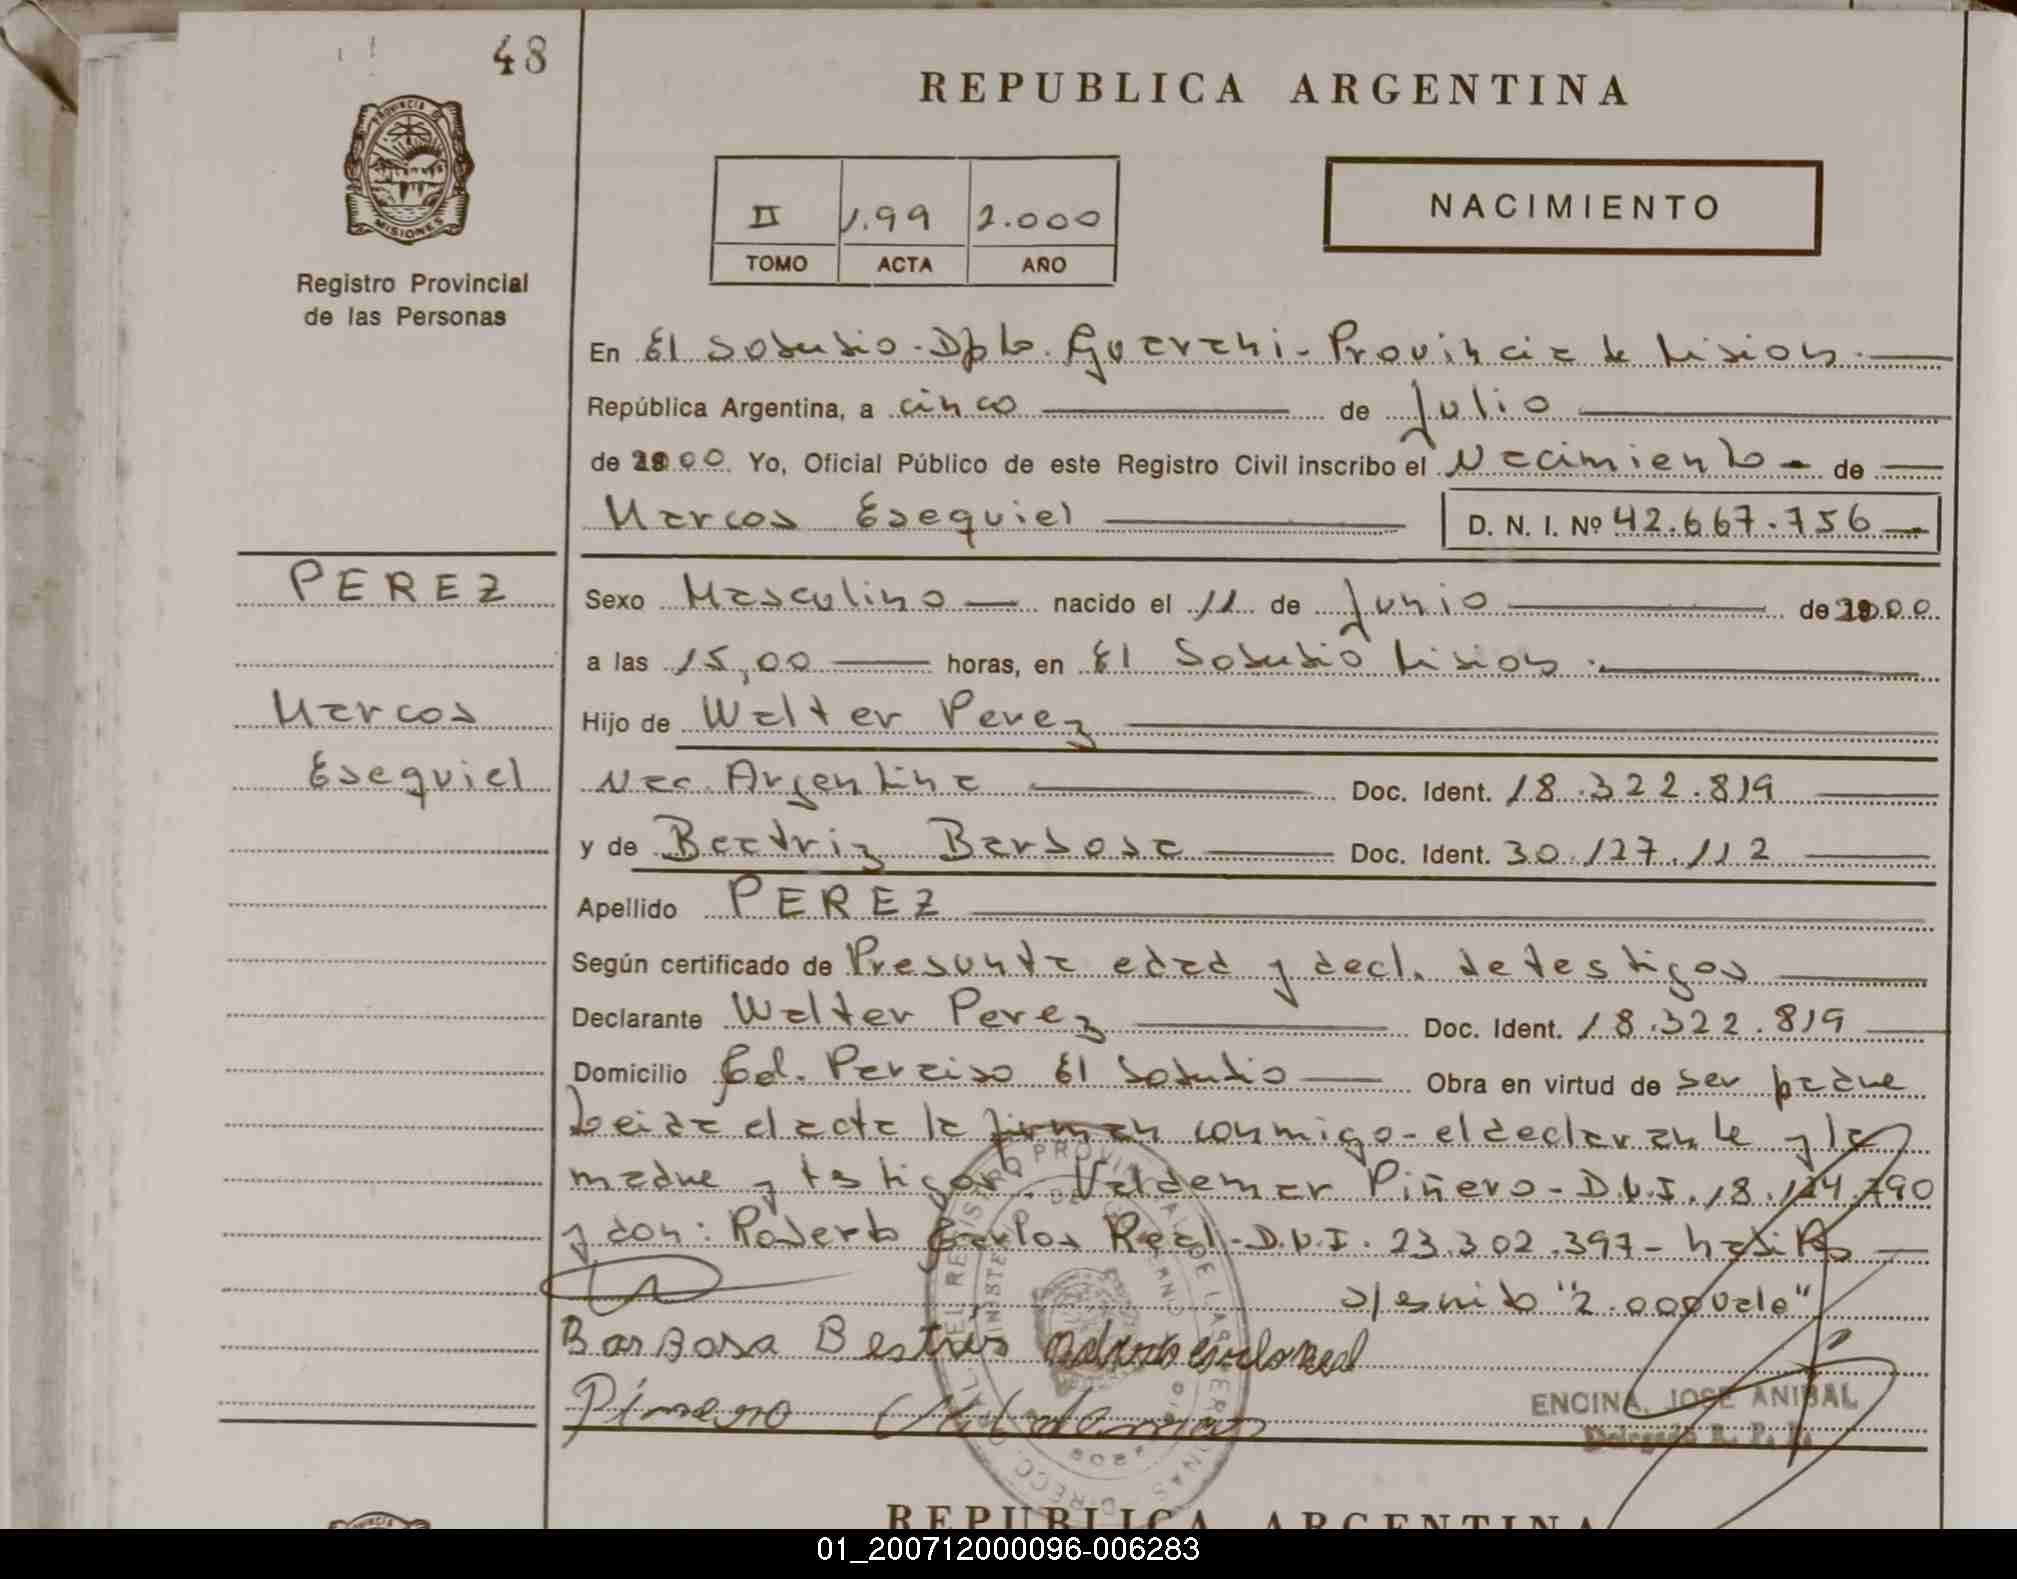 48
REPUBLICA ARGENTINA
PROVINCIA DE
MISIONES
Registro Provincial
de las Personas
II 199 2.000
TOMO ACTA AÑO
NACIMIENTO
En El Soberbio - Dpto. Guarani - Provincia de Misiones.
República Argentina, a cinco de Julio
de 2000 Yo, Oficial Público de este Registro Civil inscribo el Nacimiento - de
Marcos Esequiel D. N. I. Nº 42.667.756
PEREZ
Marcos
Esequiel
Sexo Masculino nacido el 11 de Junio de 2000
a las 15,00 horas, en El Soberbio Misiones.
Hijo de Walter Perez
Nac. Argentina Doc. Ident. 18.322.819
y de Beatriz Barbosa Doc. Ident. 30.127.112
Apellido PEREZ
Según certificado de Presunta edad y decl. de testigos
Declarante Walter Perez Doc. Ident. 18.322.819
Domicilio Col. Paraiso El Soberbio Obra en virtud de ser padre
Leida el acta la firman conmigo - el declarante y la
madre y testigos. Valdemar Piñero - D.N.I. 18.790
y don: Roberto Carlos Real - D.N.I. 23.302.397 - habiles
s/escrito "2.000 vale"
Barbosa Beatris Carlos Real
Pinero Valdemar
ENCINA, JOSE ANIBAL
Delegado R. P. P.
REPUBLICA ARGENTINA
01_200712000096-006283